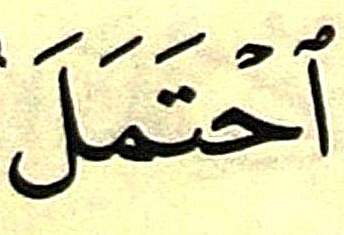 ٱحْتَمَلَ